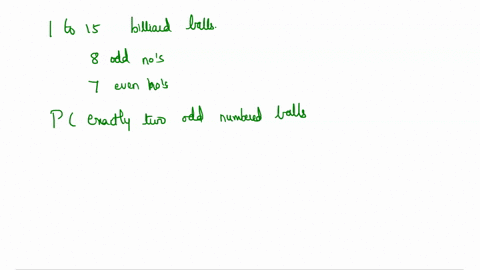 1 to 15 billiard balls.
8 odd no's
7 even no's
P( exactly two odd numbered balls